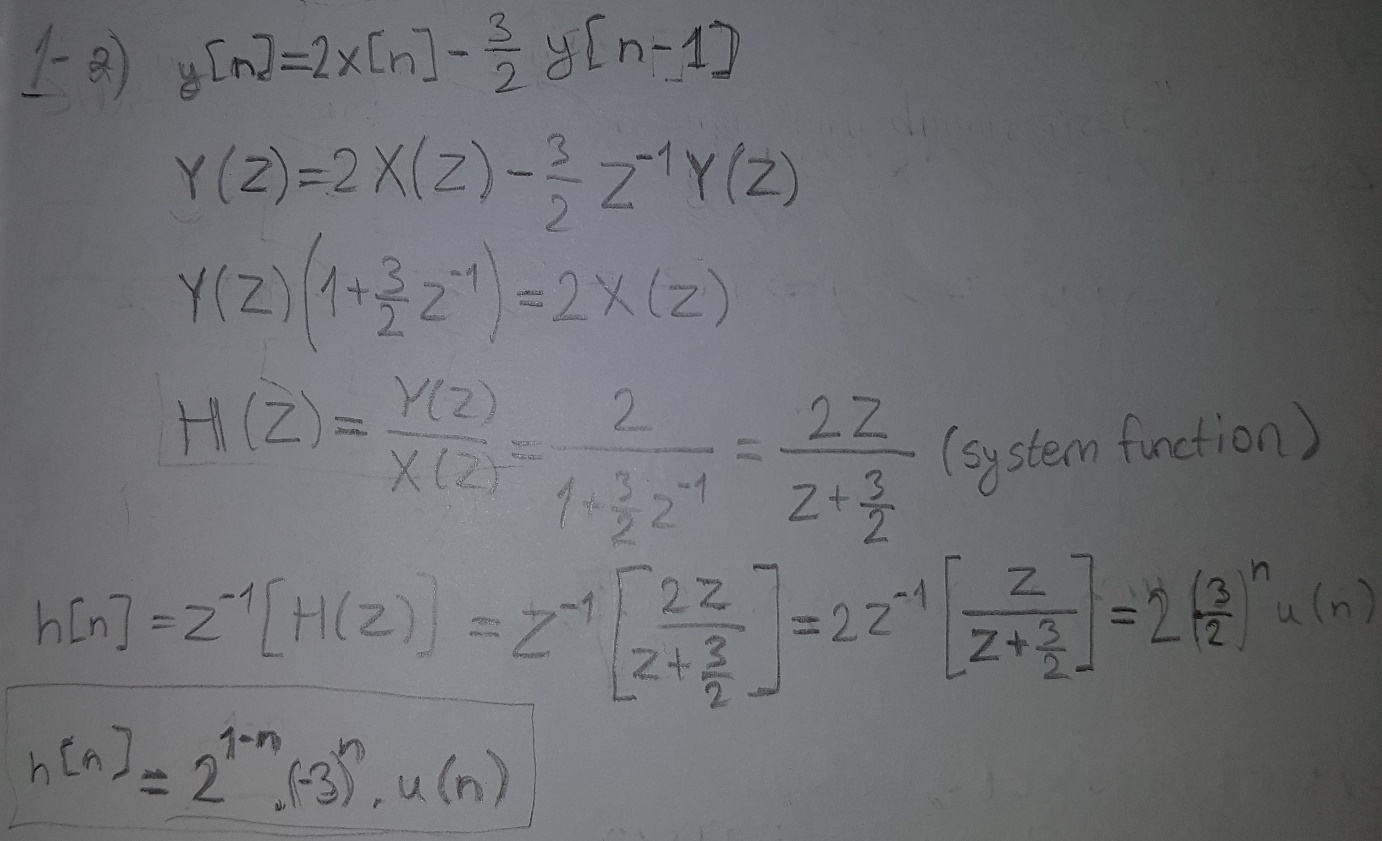 1-2) y[n]=2x[n]-3/2 y[n-1]
Y(Z)=2X(Z)-3/2 Z⁻¹Y(Z)
Y(Z)(1+3/2 z⁻¹)=2X(Z)
H(Z)=Y(Z)/X(Z)=2/(1+3/2 z⁻¹)=2Z/(Z+3/2) (system function)
h[n]=z⁻¹[H(Z)]=z⁻¹[2Z/(Z+3/2)]=2z⁻¹[Z/(Z+3/2)]=2(-3/2)ⁿu(n)
h[n]=2¹⁻ⁿ.(-3)ⁿ.u(n)